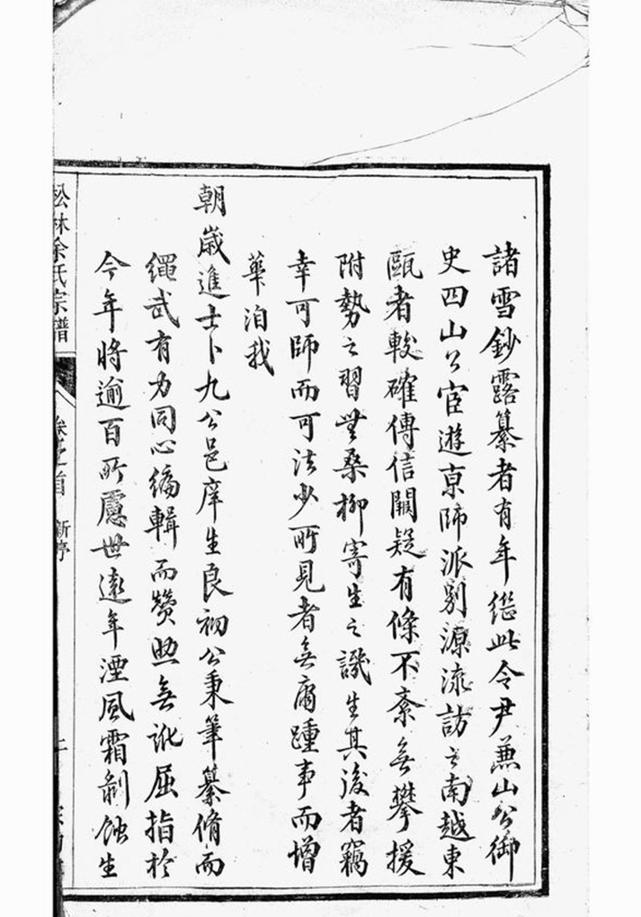 諸雪鈔露纂者有年繼此令尹蒹山公御
史四山公宦遊京師派别源流訪之南越東
甌者較確傳信闕疑有條不紊無攀援
附勢之習無桑柳寄生之譏生其後者竊
幸可師而可法少所見者無庸踵事而增
華洎我
朝歲進士卜九公邑庠生良初公秉筆纂脩而
繩武有力同心编輯而贊勷無訛屈指於
今年將逾百所慮世遠年湮風霜剝蝕生
松林余氏宗譜
卷之首
新序